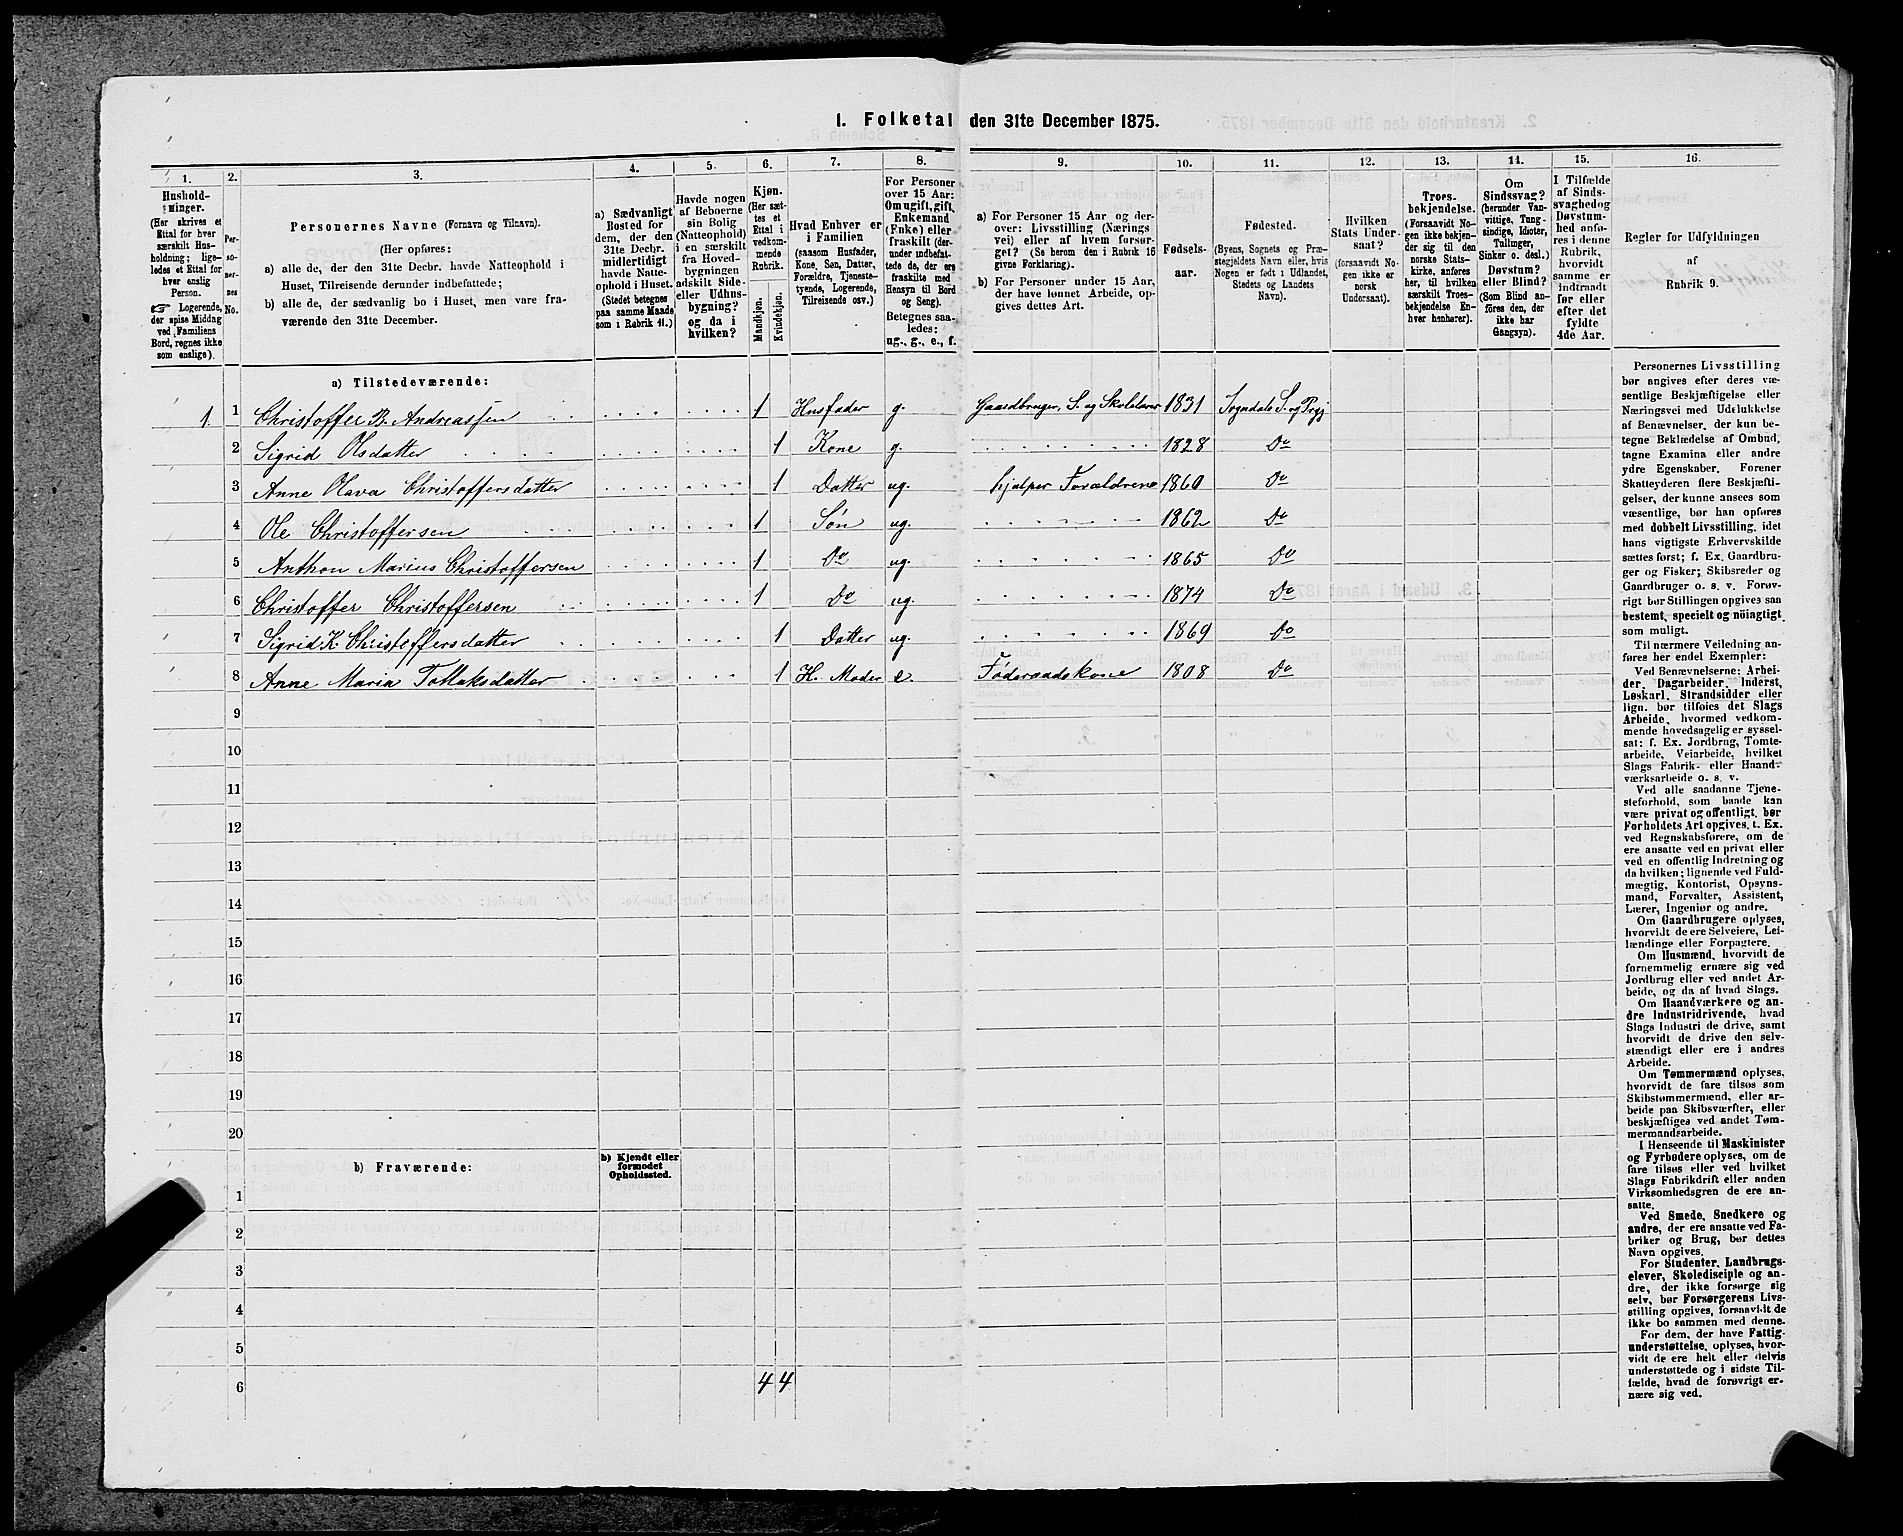 1. Folketal den 31te December 1875.
1. 2. 3. 4. 5. 6. 7. 8. 9. 10. 11. 12. 13. 14. 15. 16.
Hushold-
ninger.
(Her skrives et
Ettal for hver
særskilt Hus-
holdning; lige-
ledes et Ettal for
hver enslig
Person.
☞ Logerende,
der spise Middag
ved Familiens
Bord, regnes ikke
som enslige).
Per-
so-
ner-
nes
No.
Personernes Navne (Fornavn og Tilnavn).
(Her opføres:
a) alle de, der den 31te Decbr. havde Natteophold i
Huset, Tilreisende derunder indbefattede;
b) alle de, der sædvanlig bo i Huset, men vare fra-
værende den 31te December.
a) Sædvanligt
Bosted for
dem, der den
31te Decbr.
midlertidigt
havde Natte-
ophold i Huset.
(Stedet betegnes
paa samme Maade
som i Rubrik 11.)
Havde nogen
af Beboerne
sin Bolig
(Natteophold)
i en særskilt
fra Hoved-
bygningen
adskilt Side-
eller Udhus-
bygning?
og da i
hvilken?
Kjøn.
(Her sæt-
tes et
Ettal i
vedkom-
mende
Rubrik.
Mandkjøn.
Kvindekjøn.
Hvad Enhver er
i Familien
(saasom Husfader,
Kone, Søn, Datter,
Forældre, Tjeneste-
tyende, Logerende,
Tilreisende osv.)
For Personer
over 15 Aar:
Om ugift, gift,
Enkemand
(Enke) eller
fraskilt (der-
under indbefat-
tede de, der ere
fraskilte med
Hensyn til Bord
og Seng).
Betegnes saa-
ledes:
ug., g., e., f.
a) For Personer 15 Aar og der-
over: Livsstilling (Nærings
vei) eller af hvem forsør-
get? (Se herom den i Rubrik 16
givne Forklaring).
b) For Personer under 15 Aar,
der have lønnet Arbeide, op-
gives dettes Art.
Fødsels-
aar.
Fødested.
(Byens, Sognets og Præ-
stegjeldets Navn eller, hvis
Nogen er født i Udlandet,
Stedets og Landets
Navn).
Hvilken
Stats Under-
saat?
(forsaavidt No-
gen ikke er
norsk
Undersaat).
Troes-
bekjendelse.
(Forsaavidt No-
gen ikke bekjen-
der sig til den
norske Stats-
kirke, anføres
her, til hvilken
særskilt Troes-
bekjendelse En-
hver henhører).
Om
Sindssvag?
(herunder Van-
vittige, Tung-
sindige, Idioter,
Tullinger,
Sinker o. desl.)
Døvstum?
eller Blind?
(Som Blind an-
føres den, der
ikke har
Gangsyn).
I Tilfælde
af Sinds-
svaghed og
Døvstum-
hed anfø-
res i denne
Rubrik,
hvorvidt
samme er
indtraadt
før eller
efter det
fyldte
4de Aar.
Regler for Udfyldningen
af
Rubrik 9.
a) Tilstedeværende:
1. 1 Christoffer B. Andreassen 1 Husfader g. Gaardbruger, S. og Skolelærer 1831 Sogndals S. og Prgj
2 Sigrid Olsdatter 1 Kone g. 1828 Do
3 Anne Olava Christoffersdatter 1 Datter ug. hjælper Forældrene 1860 Do
4 Ole Christoffersen 1 Søn ug. 1862 Do
5 Anthon Marius Christoffersen 1 Do ug. 1865 Do
6 Christoffer Christoffersen 1 Do ug. 1874 Do
7 Sigrid K Christoffersdatter 1 Datter ug. 1869 Do
8 Anne Maria Tollaksdatter 1 H. Moder e. Føderaadskone 1808 Do
9
10
11
12
13
14
15
16
17
18
19
20
b) Fraværende:
b) Kjendt eller
formodet
Opholdssted.
1
2
3
4
5
6
4 4
Personernes Livsstilling
bør angives efter deres væ-
sentlige Beskjæftigelse eller
Næringsvei med Udelukkelse
af Benævnelser, der kun be-
tegne Beklædelse af Ombud,
tagne Examina eller andre
ydre Egenskaber. Forener
Skatteyderen flere Beskjæfti-
gelser, der kunne ansees som
væsentlige, bør han opføres
med dobbelt Livsstilling, idet
hans vigtigste Erhvervskilde
sættes først; f. Ex. Gaardbru-
ger og Fisker; Skibsreder og
Gaardbruger o. s. v. Forøv-
rigt bør Stillingen opgives saa
bestemt, specielt og nöiagtigt
som muligt.
Til nærmere Veiledning an-
føres her endel Exempler:
Ved Benævnelserne: Arbei-
der, Dagarbeider, Inderst,
Løskarl, Strandsidder eller
lign. bør tilføies det Slags
Arbeide, hvormed vedkom-
mende hovedsagelig er syssel-
sat: f. Ex. Jordbrug, Tomte-
arbeide, Veiarbeide, hvilket
Slags Fabrik- eller Haand-
værksarbeide o. s. v.
Ved alle saadanne Tjene-
steforhold, som baade kan
være privat og offentligt, bør
Forholdets Art opgives, t. Ex.
ved Regnskabsførere, om de
ere ansatte ved en privat eller
ved en offentlig Indretning og
da hvilken; lignende ved Fuld-
mægtig, Kontorist, Opsyns-
mand, Forvalter, Assistent,
Lærer, Ingeniør og andre.
Om Gaardbrugere oplyses,
hvorvidt de ere Selveiere, Lei-
lændinge eller Forpagtere.
Om Husmænd, hvorvidt de
fornemmelig ernære sig ved
Jordbrug eller ved andet Ar-
beide, og da af hvad Slags.
Om Haandværkere og an-
dre Industridrivende, hvad
Slags Industri de drive, samt
hvorvidt de drive den selv-
stændigt eller ere i andres
Arbeide.
Om Tømmermænd oplyses,
hvorvidt de fare tilsøs som
Skibstømmermænd, eller ar-
beide paa Skibsværfter, eller
beskjæftiges ved andet Tøm-
mermandsarbeide.
I Henseende til Maskinister
og Fyrbødere oplyses, om de
fare tilsøs eller ved hvilket
Slags Fabrikdrift eller anden
Virksomhedsgren de ere an-
satte.
Ved Smede, Snedkere og
andre, der ere ansatte ved Fa-
briker og Brug, bør dettes
Navn opgives.
For Studenter, Landbrugs-
elever, Skoledisciple og an-
dre, der ikke forsørge sig
selv, bør Forsørgerens Livs-
stilling opgives, forsaavidt de
ikke bo sammen med denne.
For dem, der have Fattig-
understøttelse, oplyses, hvor-
vidt de ere helt eller delvis
understøttede og i sidste Til-
fælde, hvad de forøvrigt er-
nære sig ved.